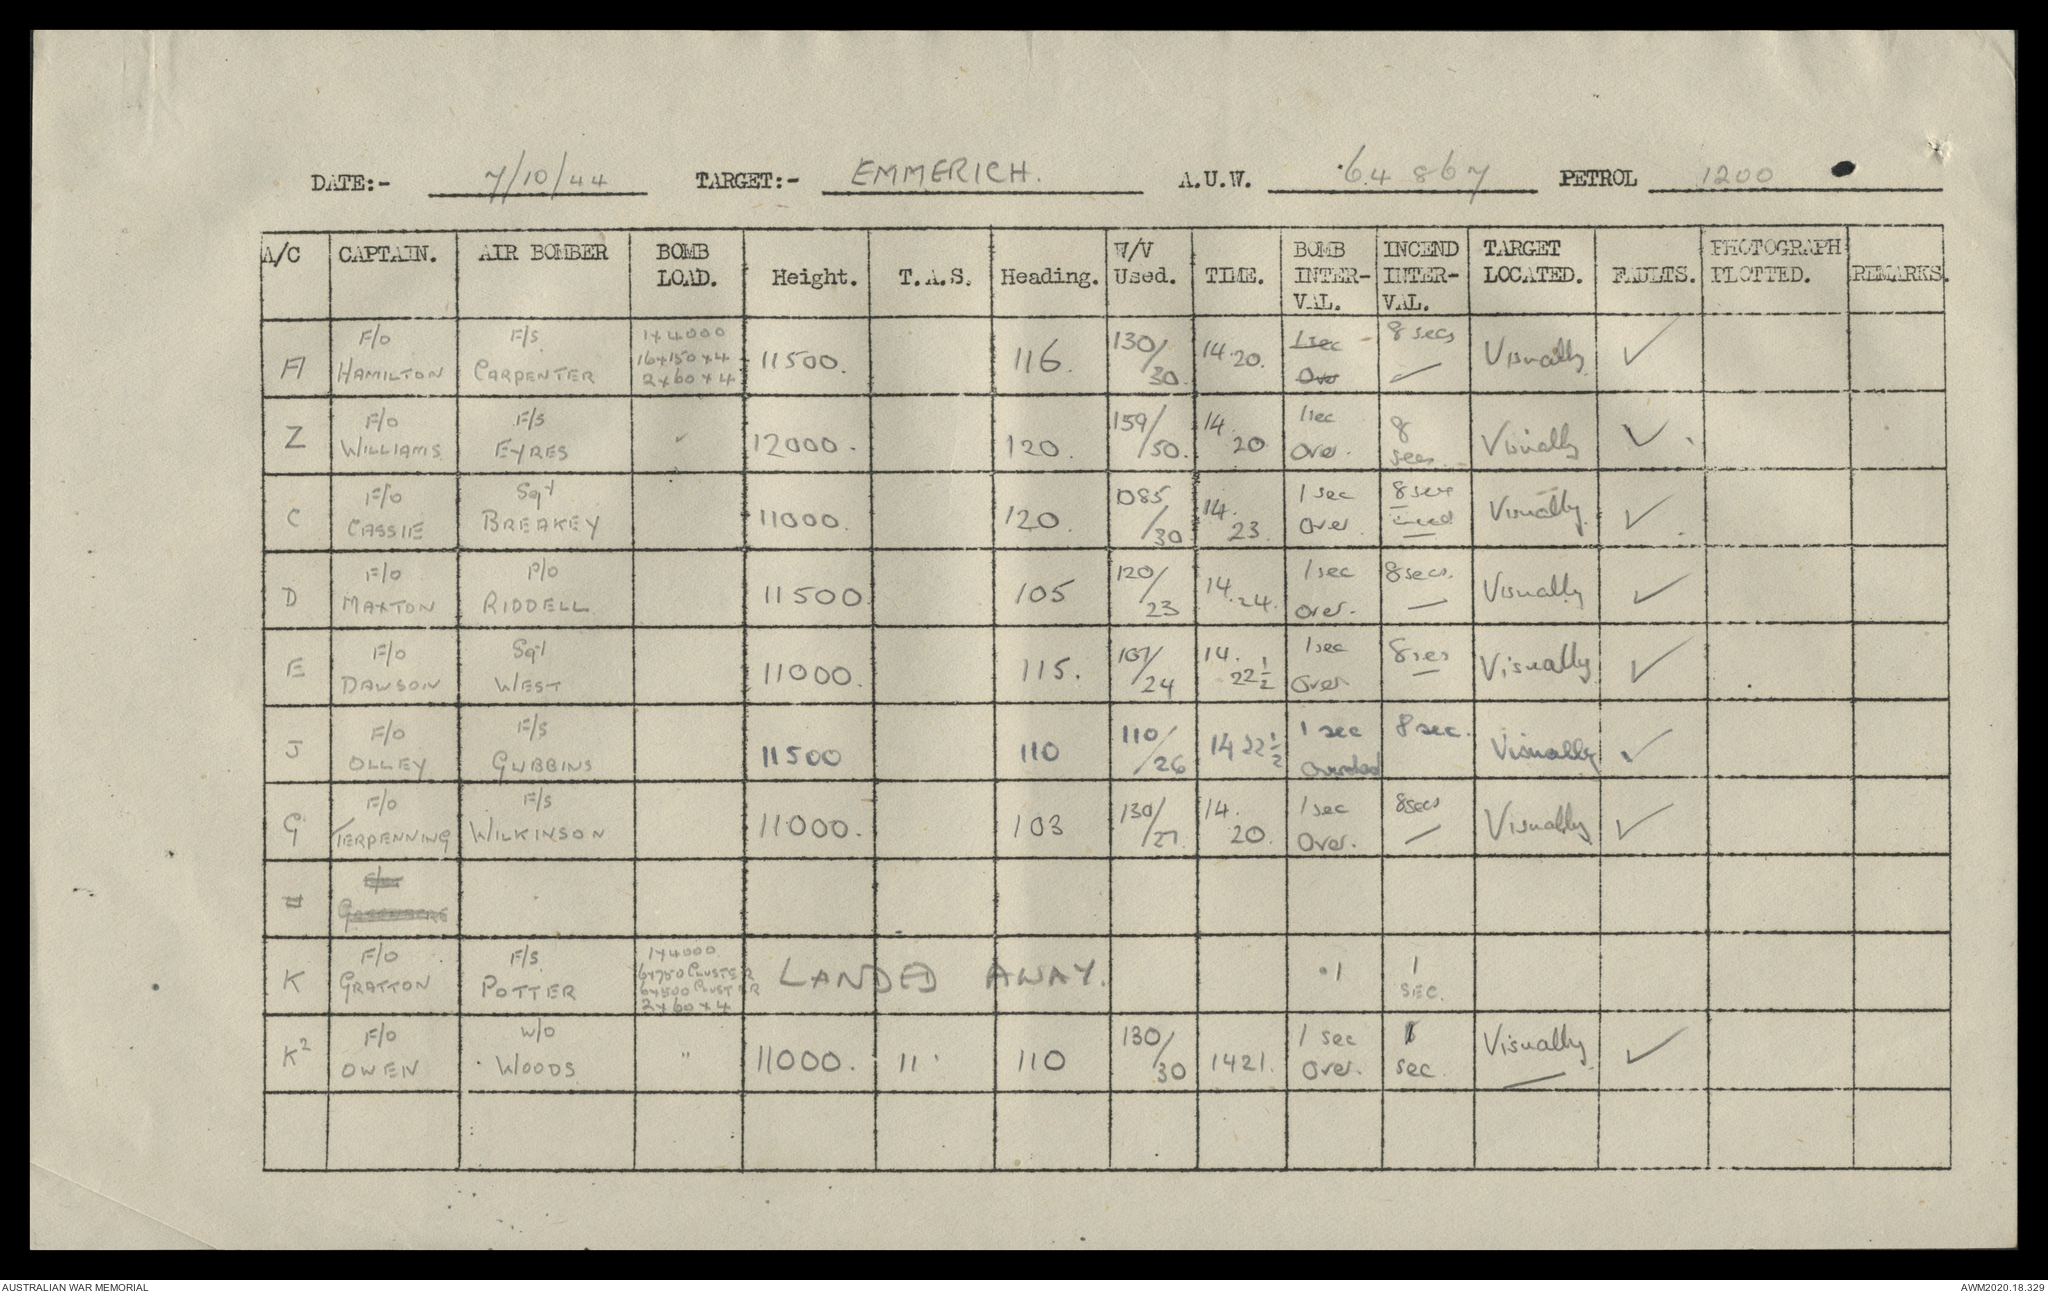 DATE:- 7/10/44 TARGET:- EMMERICH. A.U.W. 64 867 PETROL 1200
A/C CAPTAIN. AIR BOMBER BOMB LOAD. Height. T.A.S. Heading. W/V Used. TIME. BOMB INTER- VAL. INCEND INTER- VAL. TARGET LOCATED. FAULTS. PHOTOGRAPH PLOTTED. REMARKS.
A F/O HAMILTON F/S CARPENTER 1x4000 16x150x4 2x60x4 11500. 116. 130/30. 14.20. 1sec Over 8 secs Visually ✓
Z F/O WILLIAMS F/S EYRES ✓ 12000. 120. 159/50. 14.20 1sec Over. 8 secs Visually ✓
C F/O CASSIE Sgt BREAKEY 11000. 120. 085/30 14.23. 1 sec Over 8 secs Visually ✓
D F/O MAXTON P/O RIDDELL 11500. 105 120/23 14.24. 1 sec Over. 8 secs. Visually ✓
E F/O DAWSON Sgt WEST 11000. 115. 107/24 14.22½ 1 sec Over 8 secs Visually ✓
J F/O OLLEY F/S GUBBINS 11500 110 110/26 14 22½ 1 sec 8 sec. Visually ✓
G F/O TERPENNING F/S WILKINSON 11000. 103 130/27. 14.20. 1 sec Over. 8 secs Visually ✓
H
K F/O GRATTON F/S POTTER 1x4000 6x750 CLUSTER 6x500 CLUSTER 2x60x4 LANDED AWAY. .1 1 SEC.
K2 F/O OWEN W/O WOODS " 11000. 11 110 130/30 1421. 1 sec Over. 1 sec. Visually ✓
AUSTRALIAN WAR MEMORIAL AWM2020.18.329